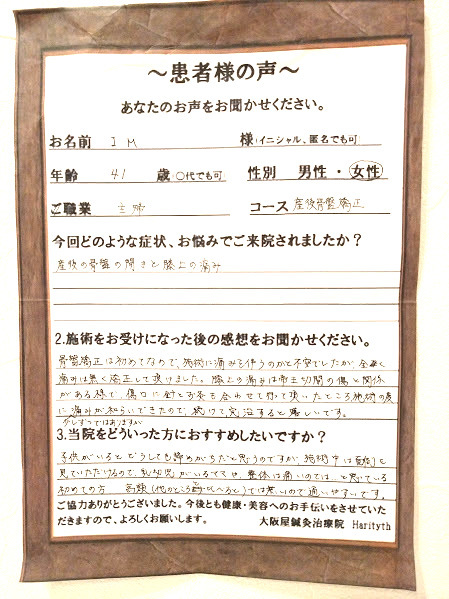 ～患者様の声～
あなたのお声をお聞かせください。
お名前 I M 様(イニシャル、匿名でも可)
年齢 41 歳(〇代でも可) 性別 男性・女性
ご職業 主婦 コース 産後骨盤矯正
今回どのような症状、お悩みでご来院されましたか？
産後の骨盤の開きと膝上の痛み
2.施術をお受けになった後の感想をお聞かせください。
骨盤矯正は初めてなので、施術に痛みを伴うのかと不安でしたが、全く
痛みは無く矯正して頂けました。膝上の痛みは帝王切開の傷と関係
がある様で、傷口に針とお灸を合わせて行って頂いたところ施術の度
に痛みが和らいできたので、続けて完治すると嬉しいです。
少しずつではありますが
3.当院をどういった方におすすめしたいですか？
子供がいるとどうしても諦めがちだと思うのですが、施術中は
見ていただけるので、乳幼児がいるママや、整体は痛いのでは…と思っている
初めての方 高額ては無いので通いやすいです。
ご協力ありがとうございました。今後とも健康・美容へのお手伝いをさせていた
だきますので、よろしくお願いします。
大阪屋鍼灸治療院 Harityth